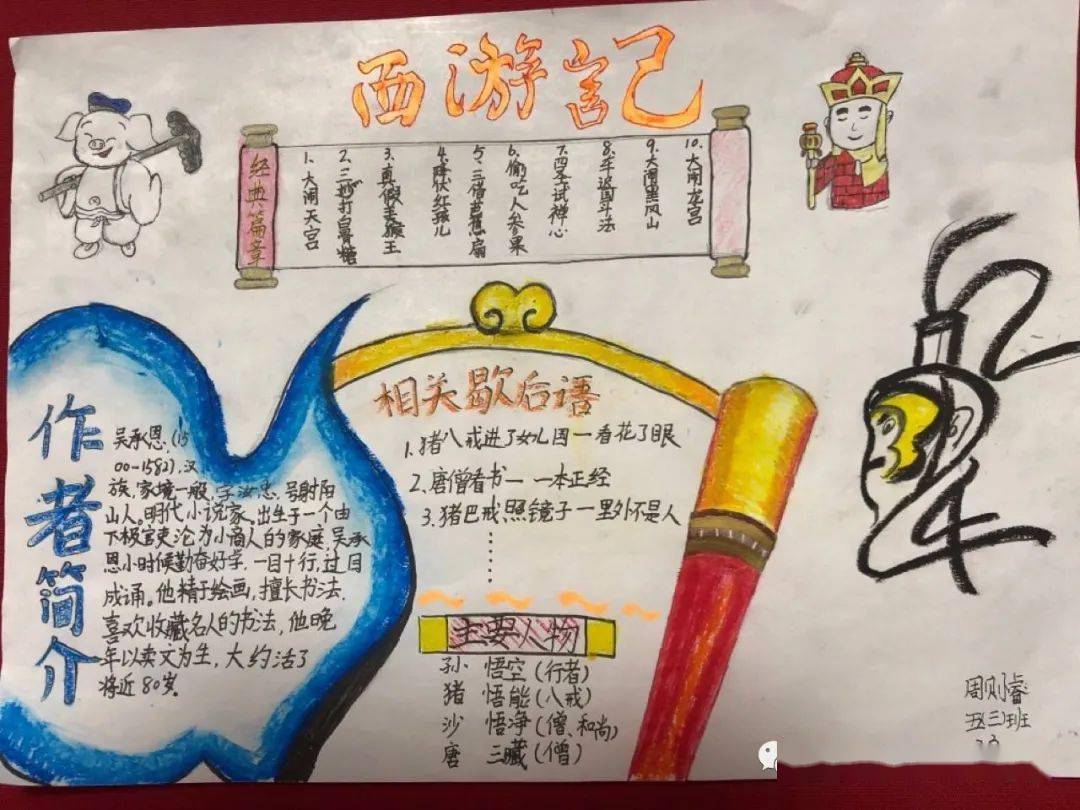 西游記
经典篇章
1.大闹天宫
2.三打白骨精
3.真假美猴王
4.降伏红孩儿
5.三借芭蕉扇
6.偷吃人参果
7.四圣试禅心
8.车迟国斗法
9.大闹黑风山
10.大闹龙宫
作者简介
吴承恩.(15
00-1582),汉
族,家境一般,字汝忠,号射阳
山人。明代小说家。出生于一个由
下极官吏沦为小商人的家庭,吴承
恩小时候勤奋好学,一目十行,过目
成诵。他精于绘画,擅长书法,
喜欢收藏名人的书法,他晚
年以卖文为生,大约活了
将近80岁。
相关歇后语
1.猪八戒进了女儿国一看花了眼
2.唐僧看书一 一本正经
3.猪巴戒照镜子一里外不是人
……
主要人物
孙 悟空(行者)
猪 悟能(八戒)
沙 悟净(僧、和尚)
唐 三藏(僧)
周则睿
五(三)班